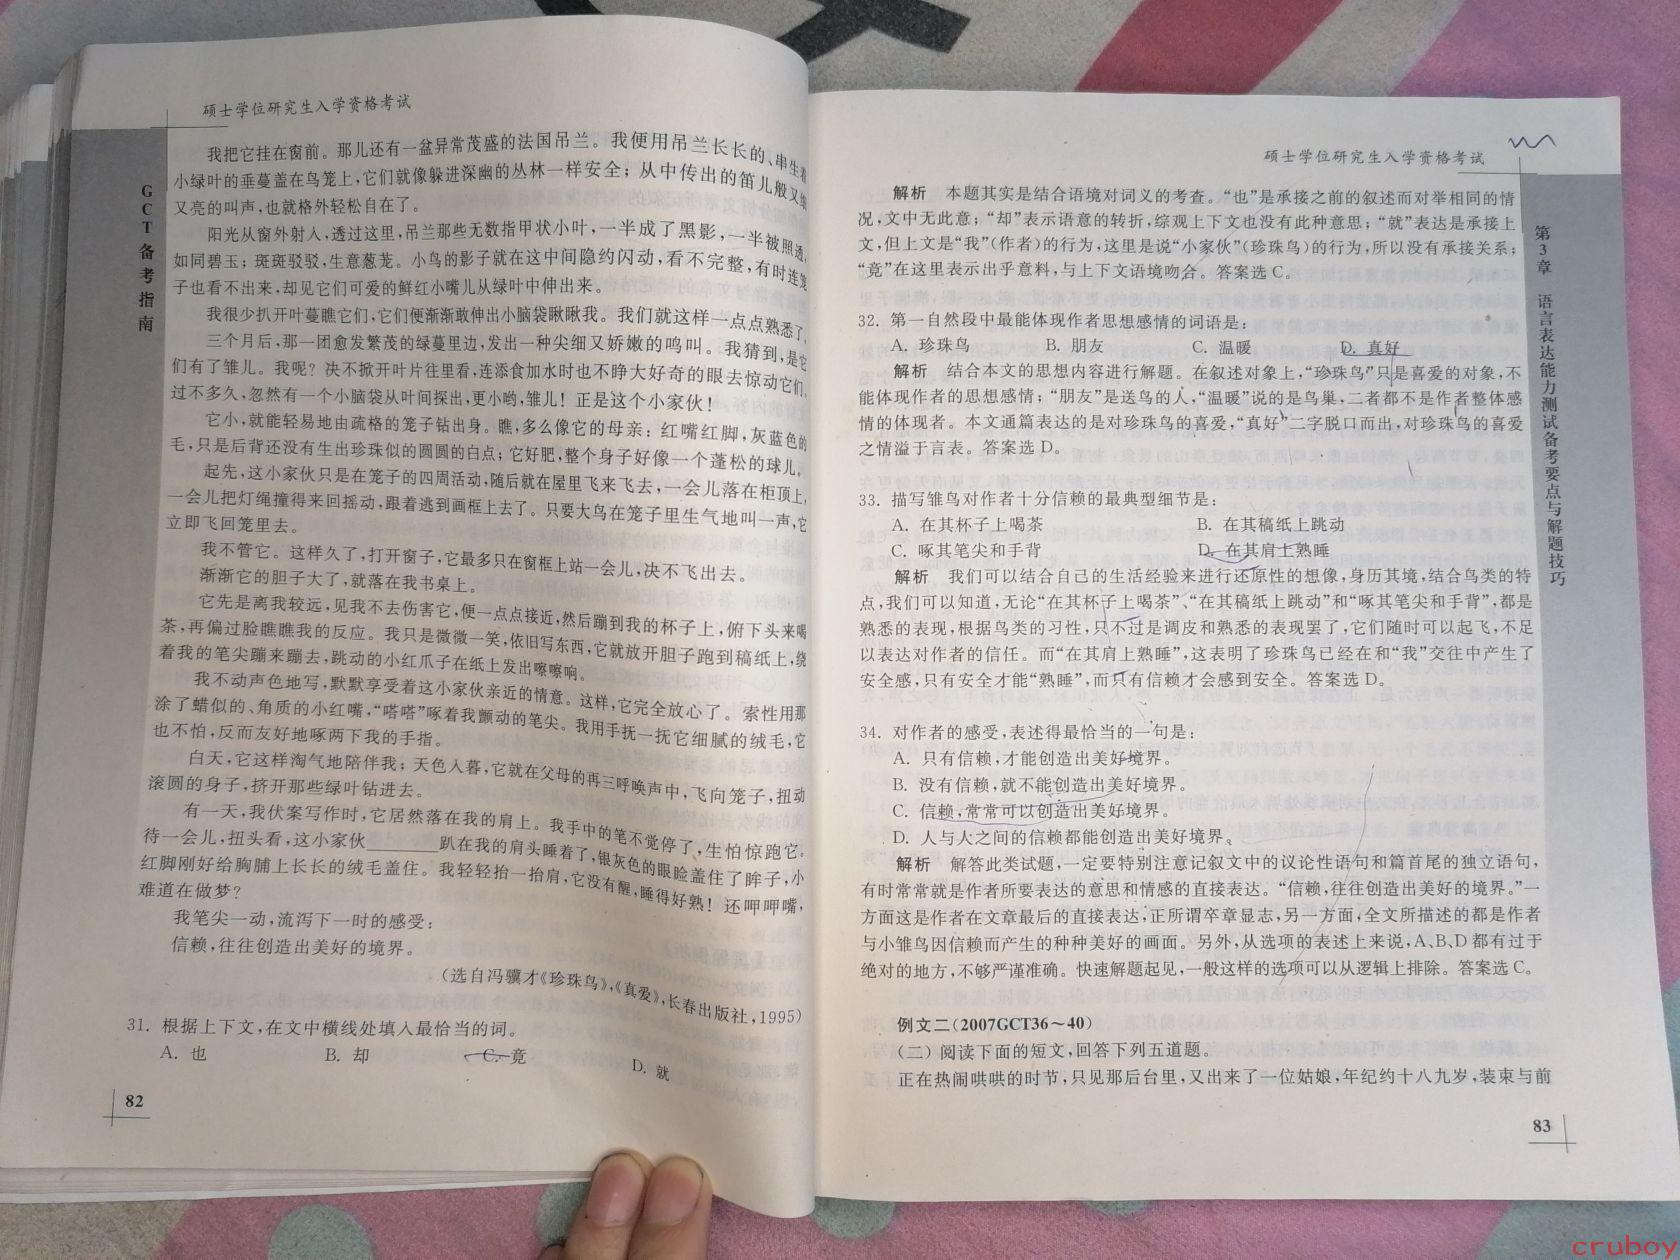 硕士学位研究生入学资格考试
GCT备考指南
我把它挂在窗前。那儿还有一盆异常茂盛的法国吊兰。我便用吊兰长长的、串生着
小绿叶的垂蔓盖在鸟笼上,它们就像躲进深幽的丛林一样安全;从中传出的笛儿般又细
又亮的叫声,也就格外轻松自在了。
阳光从窗外射入,透过这里,吊兰那些无数指甲状小叶,一半成了黑影,一半被照透,
如同碧玉;斑斑驳驳,生意葱茏。小鸟的影子就在这中间隐约闪动,看不完整,有时连笼
子也看不出来,却见它们可爱的鲜红小嘴儿从绿叶中伸出来。
我很少扒开叶蔓瞧它们,它们便渐渐敢伸出小脑袋瞅瞅我。我们就这样一点点熟悉了。
三个月后,那一团愈发繁茂的绿蔓里边,发出一种尖细又娇嫩的鸣叫。我猜到,是它
们有了雏儿。我呢?决不掀开叶片往里看,连添食加水时也不睁大好奇的眼去惊动它们。
过不多久,忽然有一个小脑袋从叶间探出,更小哟,雏儿!正是这个小家伙!
它小,就能轻易地由疏格的笼子钻出身。瞧,多么像它的母亲:红嘴红脚,灰蓝色的
毛,只是后背还没有生出珍珠似的圆圆的白点;它好肥,整个身子好像一个蓬松的球儿。
起先,这小家伙只是在笼子的四周活动,随后就在屋里飞来飞去,一会儿落在柜顶上,
一会儿把灯绳撞得来回摇动,跟着逃到画框上去了。只要大鸟在笼子里生气地叫一声,它
立即飞回笼里去。
我不管它。这样久了,打开窗子,它最多只在窗框上站一会儿,决不飞出去。
渐渐它的胆子大了,就落在我书桌上。
它先是离我较远,见我不去伤害它,便一点点接近,然后蹦到我的杯子上,俯下头来喝
茶,再偏过脸瞧瞧我的反应。我只是微微一笑,依旧写东西,它就放开胆子跑到稿纸上,绕
着我的笔尖蹦来蹦去,跳动的小红爪子在纸上发出嚓嚓响。
我不动声色地写,默默享受着这小家伙亲近的情意。这样,它完全放心了。索性用那
涂了蜡似的、角质的小红嘴,“嗒嗒”啄着我颤动的笔尖。我用手抚一抚它细腻的绒毛,它
也不怕,反而友好地啄两下我的手指。
白天,它这样淘气地陪伴我;天色入暮,它就在父母的再三呼唤声中,飞向笼子,扭动
滚圆的身子,挤开那些绿叶钻进去。
有一天,我伏案写作时,它居然落在我的肩上。我手中的笔不觉停了,生怕惊跑它。
待一会儿,扭头看,这小家伙______趴在我的肩头睡着了,银灰色的眼睑盖住了眸子,小
红脚刚好给胸脯上长长的绒毛盖住。我轻轻抬一抬肩,它没有醒,睡得好熟!还呷呷嘴,
难道在做梦?
我笔尖一动,流泻下一时的感受:
信赖,往往创造出美好的境界。
(选自冯骥才《珍珠鸟》,《真爱》,长春出版社,1995)
31. 根据上下文,在文中横线处填入最恰当的词。
A. 也 B. 却 C. 竟 D. 就
82
硕士学位研究生入学资格考试
第3章 语言表达能力测试备考要点与解题技巧
解析 本题其实是结合语境对词义的考查。“也”是承接之前的叙述而对举相同的情
况,文中无此意;“却”表示语意的转折,综观上下文也没有此种意思;“就”表达是承接上
文,但上文是“我”(作者)的行为,这里是说“小家伙”(珍珠鸟)的行为,所以没有承接关系;
“竟”在这里表示出乎意料,与上下文语境吻合。答案选C。
32. 第一自然段中最能体现作者思想感情的词语是:
A. 珍珠鸟 B. 朋友 C. 温暖 D. 真好
解析 结合本文的思想内容进行解题。在叙述对象上,“珍珠鸟”只是喜爱的对象,不
能体现作者的思想感情;“朋友”是送鸟的人,“温暖”说的是鸟巢,二者都不是作者整体感
情的体现者。本文通篇表达的是对珍珠鸟的喜爱,“真好”二字脱口而出,对珍珠鸟的喜爱
之情溢于言表。答案选D。
33. 描写雏鸟对作者十分信赖的最典型细节是:
A. 在其杯子上喝茶 B. 在其稿纸上跳动
C. 啄其笔尖和手背 D. 在其肩上熟睡
解析 我们可以结合自己的生活经验来进行还原性的想像,身历其境,结合鸟类的特
点,我们可以知道,无论“在其杯子上喝茶”、“在其稿纸上跳动”和“啄其笔尖和手背”,都是
熟悉的表现,根据鸟类的习性,只不过是调皮和熟悉的表现罢了,它们随时可以起飞,不足
以表达对作者的信任。而“在其肩上熟睡”,这表明了珍珠鸟已经在和“我”交往中产生了
安全感,只有安全才能“熟睡”,而只有信赖才会感到安全。答案选D。
34. 对作者的感受,表述得最恰当的一句是:
A. 只有信赖,才能创造出美好境界。
B. 没有信赖,就不能创造出美好境界。
C. 信赖,常常可以创造出美好境界。
D. 人与人之间的信赖都能创造出美好境界。
解析 解答此类试题,一定要特别注意记叙文中的议论性语句和篇首尾的独立语句,
有时常常就是作者所要表达的意思和情感的直接表达。“信赖,往往创造出美好的境界。”一
方面这是作者在文章最后的直接表达,正所谓卒章显志,另一方面,全文所描述的都是作者
与小雏鸟因信赖而产生的种种美好的画面。另外,从选项的表述上来说,A、B、D都有过于
绝对的地方,不够严谨准确。快速解题起见,一般这样的选项可以从逻辑上排除。答案选C。
例文二(2007GCT36~40)
(二)阅读下面的短文,回答下列五道题。
正在热闹哄哄的时节,只见那后台里,又出来了一位姑娘,年纪约十八九岁,装束与前
83
cruboy